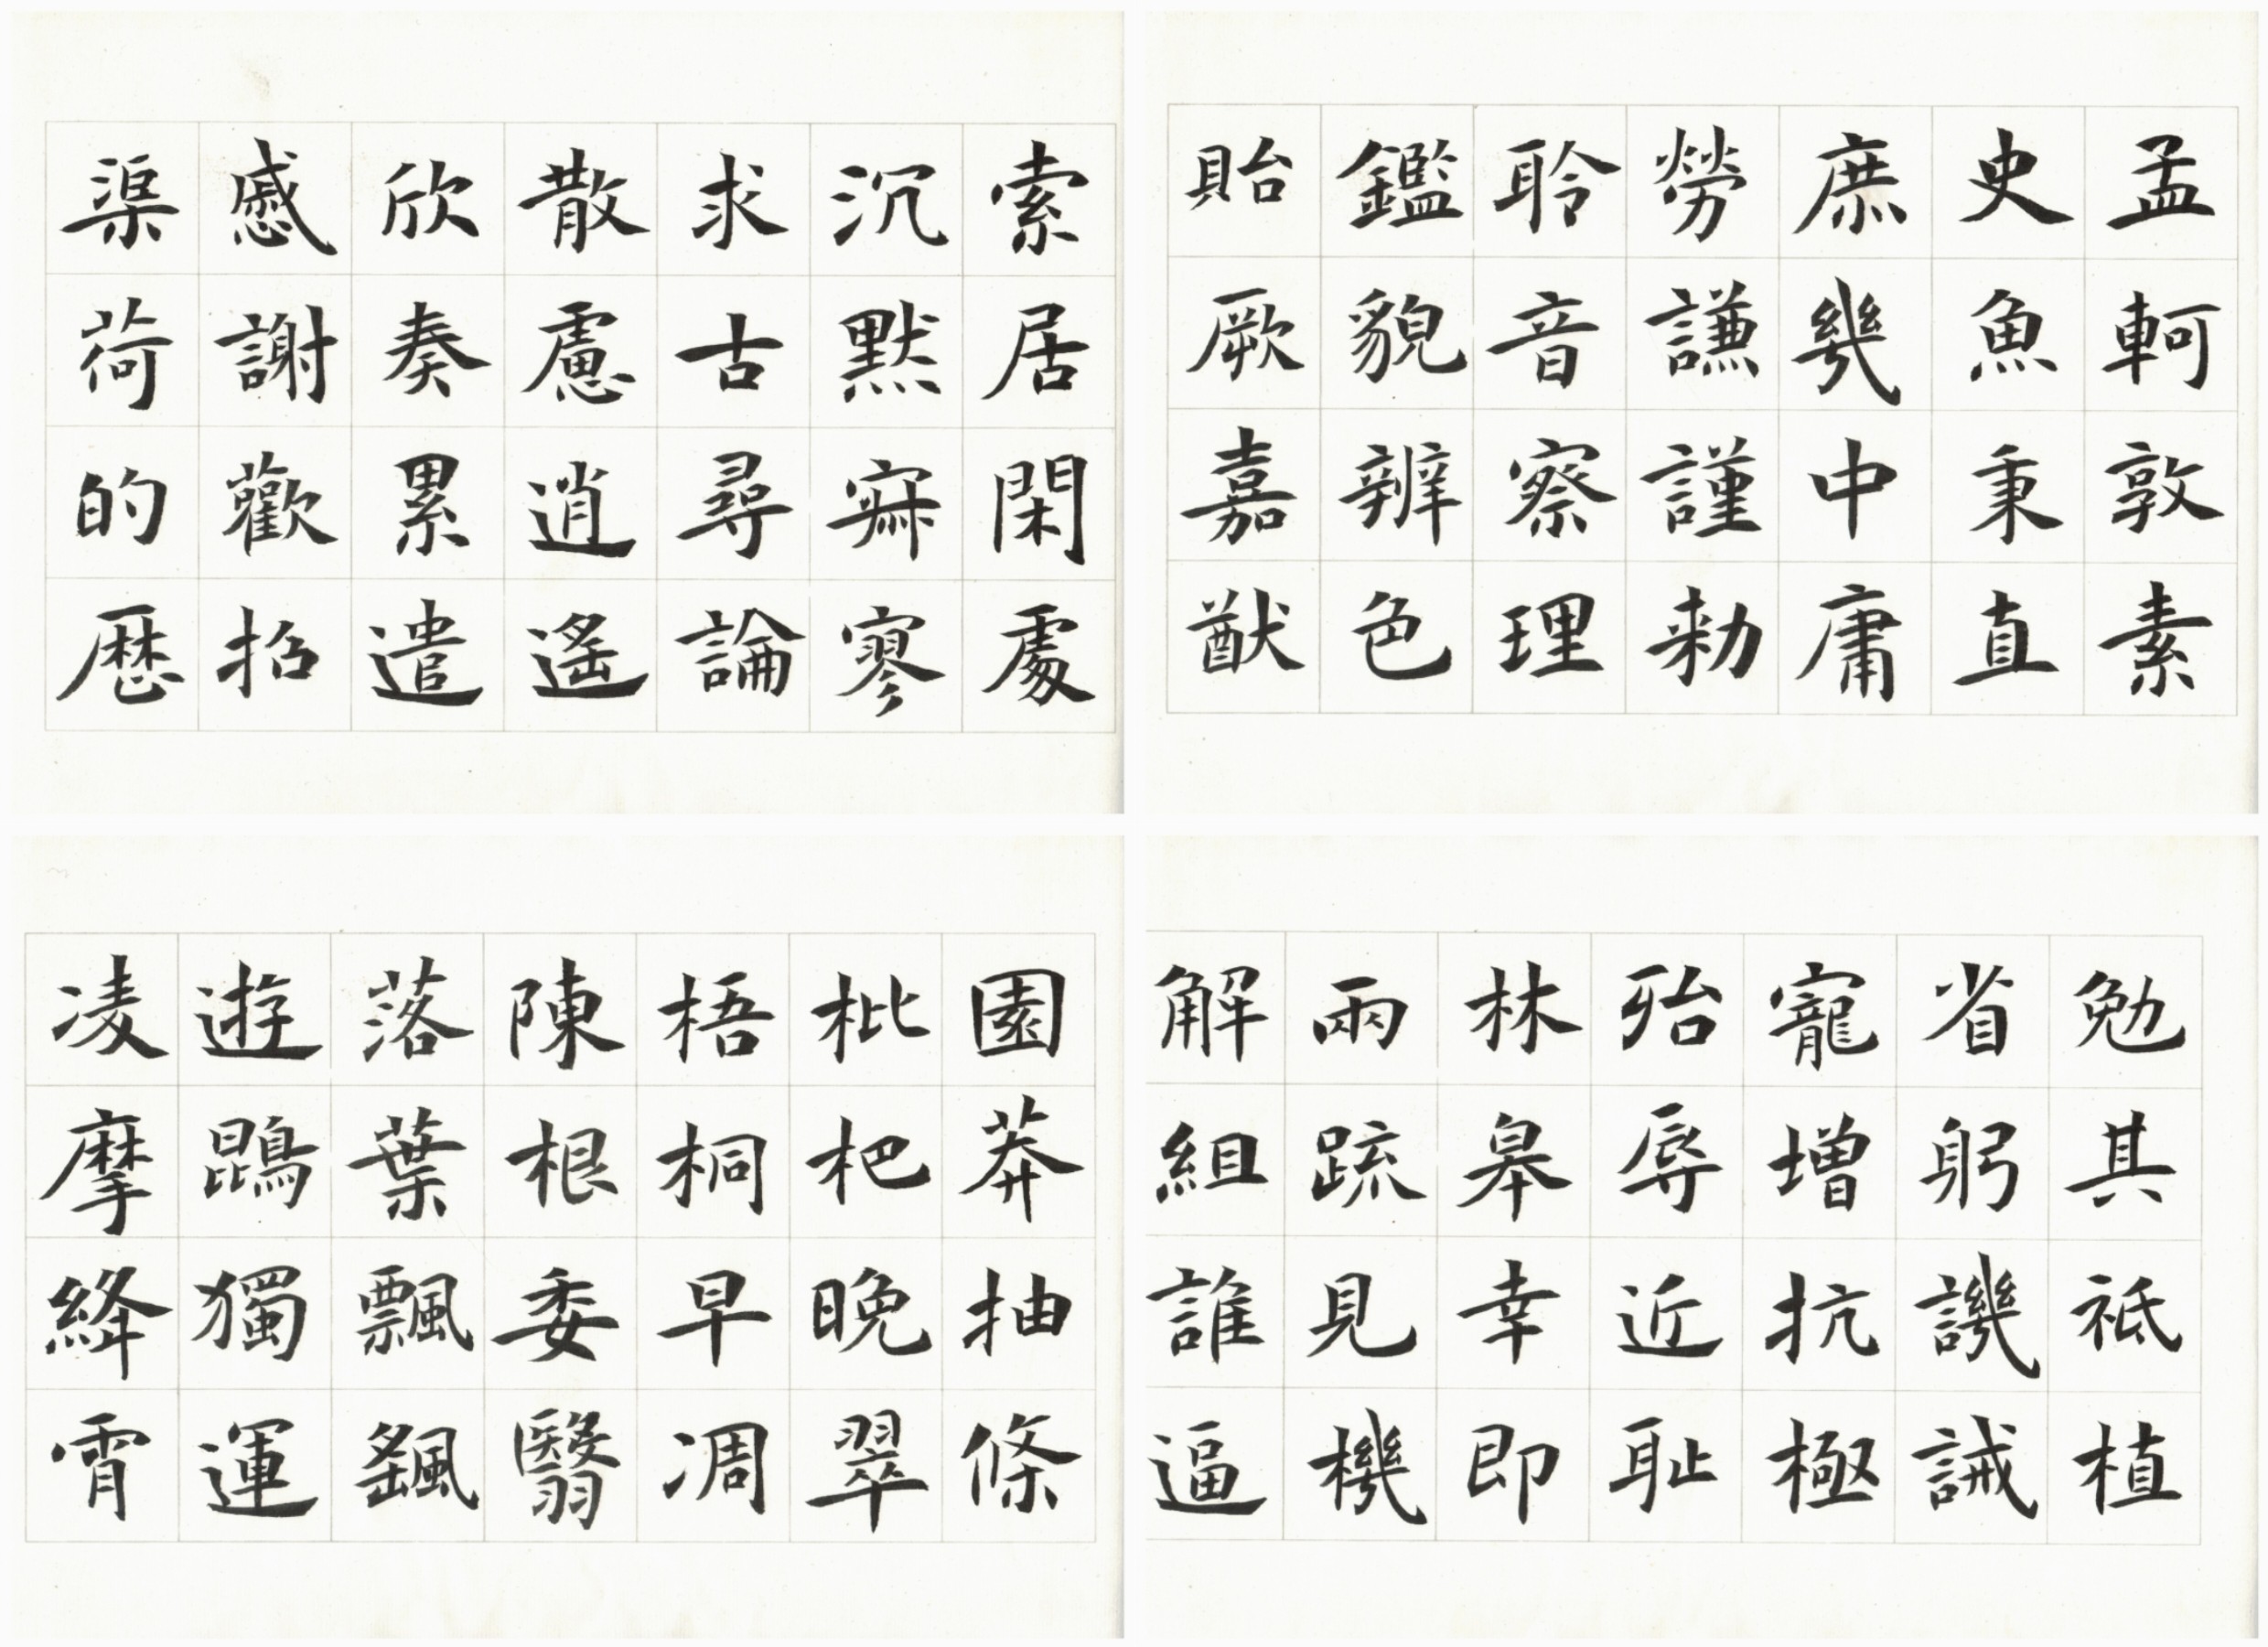 孟軻敦素
史魚秉直
庶幾中庸
勞謙謹勅
聆音察理
鑑貌辨色
貽厥嘉猷
勉其祗植
省躬譏誡
寵增抗極
殆辱近耻
林皋幸即
兩疏見機
解組誰逼
索居閑處
沉默寂寥
求古尋論
散慮逍遙
欣奏累遣
慼謝歡招
渠荷的歷
園莽抽條
枇杷晚翠
梧桐早凋
陳根委翳
落葉飄颻
遊鵾獨運
凌摩絳霄